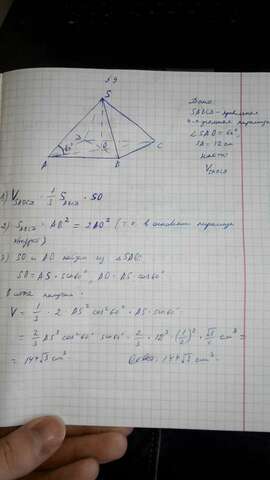 №9
S
60°
A
O
B
C
D
Дано:
SABCD - правильная
4-х угольная пирамида
∠SAO = 60°
SA = 12 см
Найти
V_SABCD
1) V_SABCD = 1/3 S_ABCD · SO
2) S_ABCD = AB² = 2AO² (т.к. в основании пирамиды
квадрат)
3) SO и AO найдем из △SAO:
SO = AS · sin60°, AO = AS cos60°
В итоге получим:
V = 1/3 · 2 AS² cos²60° · AS · sin60° =
= 2/3 AS³ cos²60° sin60° = 2/3 · 12³ · (1/2)² · √3/2 см³ =
= 144√3 см³. Ответ: 144√3 см³.